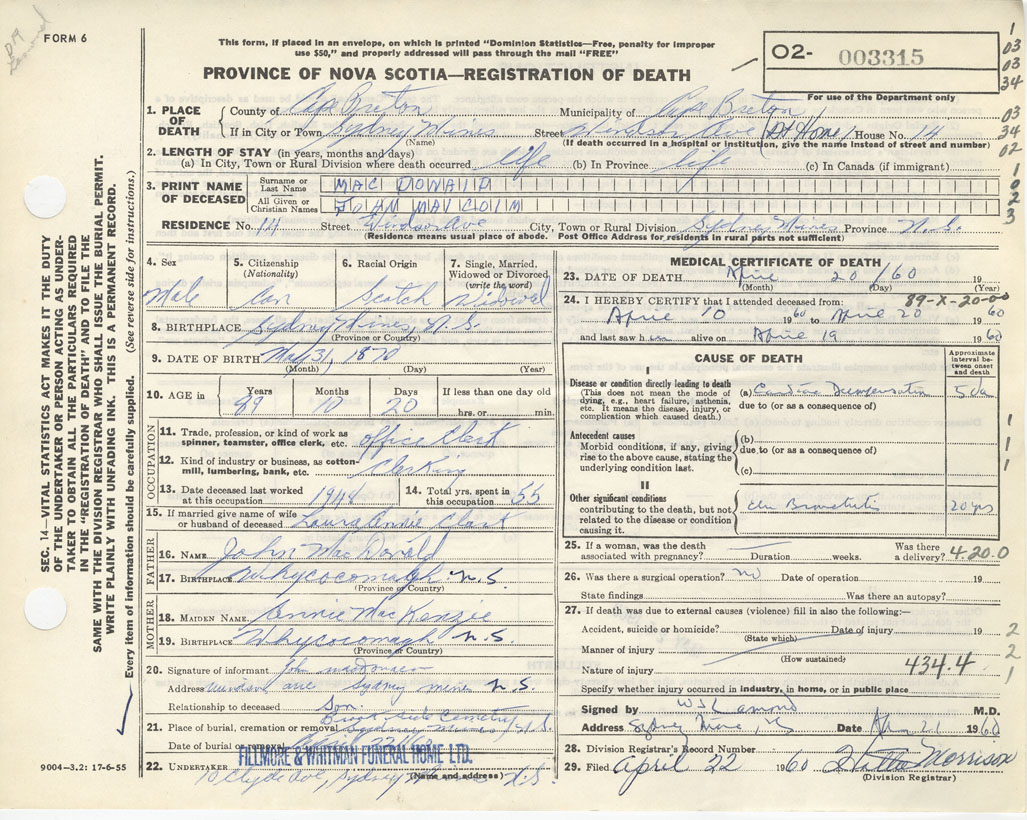 FORM 6
This form, if placed in an envelope, on which is printed "Dominion Statistics—Free, penalty for improper
use $50," and properly addressed will pass through the mail "FREE"
PROVINCE OF NOVA SCOTIA—REGISTRATION OF DEATH
O2- 003315
For use of the Department only
1. PLACE OF DEATH
County of Cape Breton Municipality of Cape Breton
If in City or Town Sydney Mines Street Windsor Ave (At Home) House No. 14
(Name) (If death occurred in a hospital or institution, give the name instead of street and number)
2. LENGTH OF STAY (in years, months and days)
(a) In City, Town or Rural Division where death occurred life (b) In Province life (c) In Canada (if immigrant)
3. PRINT NAME OF DECEASED
Surname or Last Name MAC DONALD
All Given or Christian Names DAN MALCOLM
RESIDENCE No. 14 Street Windsor Ave City, Town or Rural Division Sydney Mines Province N.S.
(Residence means usual place of abode. Post Office Address for residents in rural parts not sufficient)
4. Sex Male
5. Citizenship (Nationality) Can
6. Racial Origin Scotch
7. Single, Married, Widowed or Divorced (write the word) Widowed
8. BIRTHPLACE Sydney Mines, N.S.
(Province or Country)
9. DATE OF BIRTH May 31, 1870
(Month) (Day) (Year)
10. AGE in Years 89 Months 10 Days 20 If less than one day old hrs. or min.
OCCUPATION
11. Trade, profession, or kind of work as spinner, teamster, office clerk, etc. office Clerk
12. Kind of industry or business, as cotton-mill, lumbering, bank, etc. Clerking
13. Date deceased last worked at this occupation 1944
14. Total yrs. spent in this occupation 55
15. If married give name of wife or husband of deceased Laura Annie Clark
FATHER
16. NAME John MacDonald
17. BIRTHPLACE Whycocomagh N.S.
(Province or Country)
MOTHER
18. MAIDEN NAME Annie MacKenzie
19. BIRTHPLACE Whycocomagh N.S.
(Province or Country)
20. Signature of informant John MacDonald
Address Windsor ave Sydney mines N.S.
Relationship to deceased Son.
21. Place of burial, cremation or removal Brook side Cemetery Sydney mines N.S.
Date of burial or removal April 22/60
22. UNDERTAKER FILLMORE & WHITMAN FUNERAL HOME LTD.
10 Clyde Ave, Sydney Mines N.S.
(Name and address)
9004—3.2: 17-6-55
SEC. 14—VITAL STATISTICS ACT MAKES IT THE DUTY
OF THE UNDERTAKER OR PERSON ACTING AS UNDER-
TAKER TO OBTAIN ALL THE PARTICULARS REQUIRED
IN THE "REGISTRATION OF DEATH" AND TO FILE THE
SAME WITH THE DIVISION REGISTRAR WHO SHALL ISSUE THE BURIAL PERMIT.
WRITE PLAINLY WITH UNFADING INK. THIS IS A PERMANENT RECORD.
Every item of information should be carefully supplied. (See reverse side for instructions.)
MEDICAL CERTIFICATE OF DEATH
23. DATE OF DEATH April 20 /60
(Month) (Day) (Year)
89-X-20-00
24. I HEREBY CERTIFY that I attended deceased from:
April 10 1960 to April 20 1960
and last saw him alive on April 19 1960
CAUSE OF DEATH
Approximate interval between onset and death
I
Disease or condition directly leading to death
(This does not mean the mode of dying, e.g., heart failure, asthenia, etc. It means the disease, injury, or complication which caused death.)
(a) Cardiac Decompensation 5 da
due to (or as a consequence of)
Antecedent causes
Morbid conditions, if any, giving rise to the above cause, stating the underlying condition last.
(b)
due to (or as a consequence of)
(c)
II
Other significant conditions
contributing to the death, but not related to the disease or condition causing it.
Chr Bronchitis 20 yrs
25. If a woman, was the death associated with pregnancy? Duration weeks. Was there a delivery? 4.20.0
26. Was there a surgical operation? no Date of operation 19
State findings Was there an autopsy?
27. If death was due to external causes (violence) fill in also the following:—
Accident, suicide or homicide? Date of injury 19
(State which)
Manner of injury
(How sustained)
Nature of injury 434.4
Specify whether injury occurred in industry, in home, or in public place
Signed by Lamond M.D.
Address Sydney Mines, N.S. Date Apr 21 1960
28. Division Registrar's Record Number
29. Filed April 22 1960 Hattie Morrison
(Division Registrar)
1
03
03
34
03
34
02
1
0
2
3
1
1
1
2
2
1